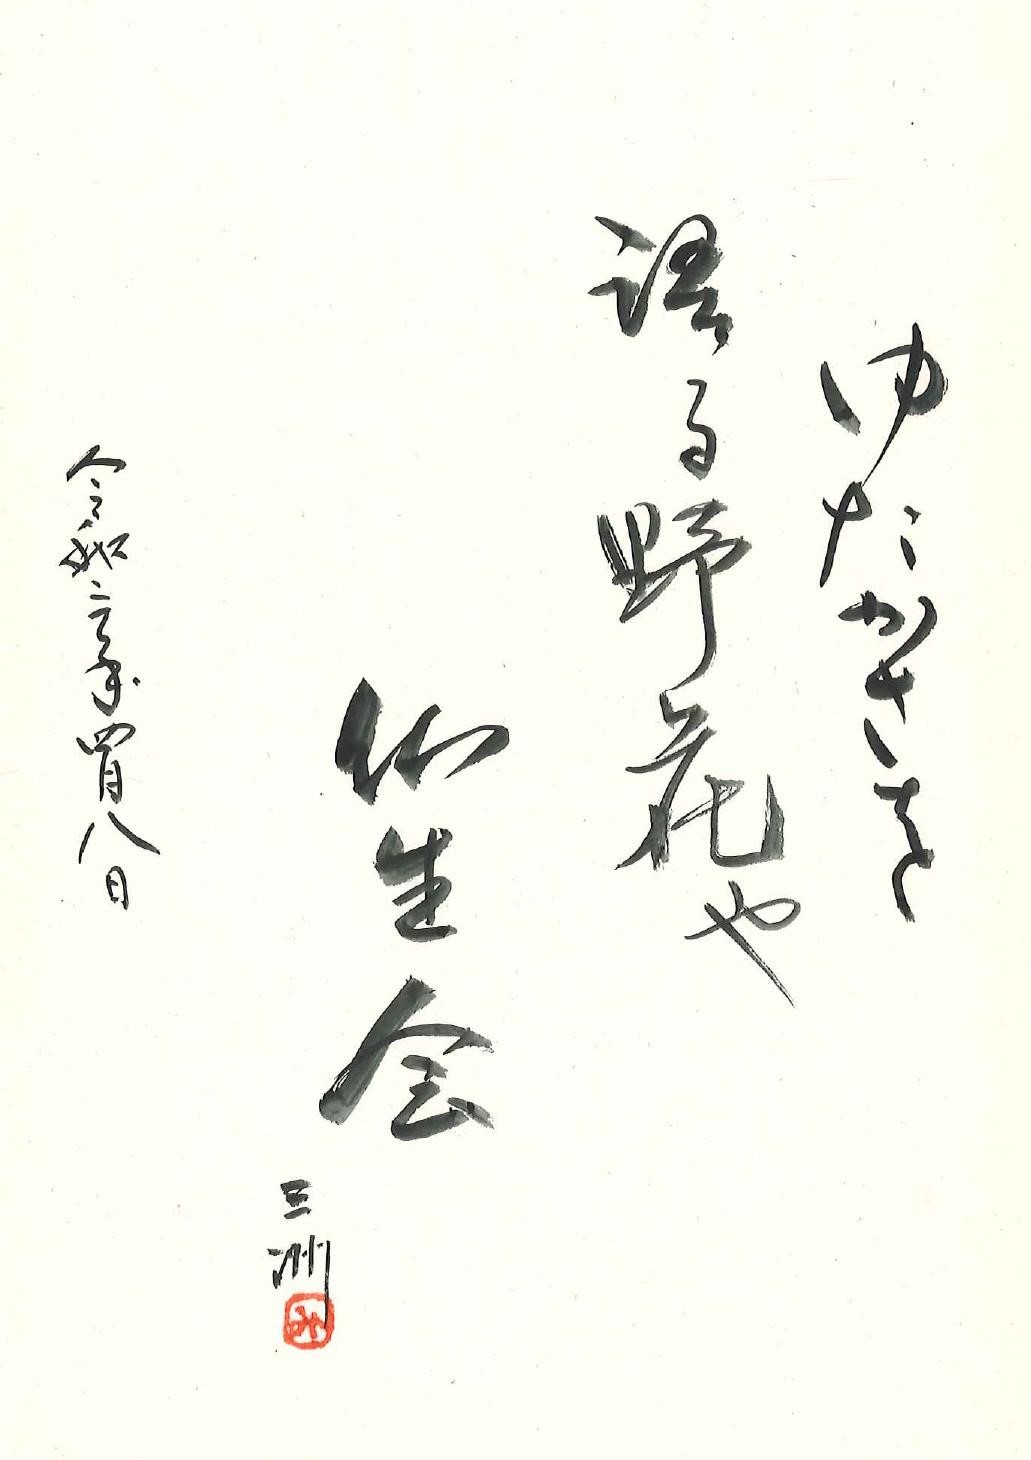 ゆたかさを
語る野花や
仙生会
三洲
令和二年四月八日